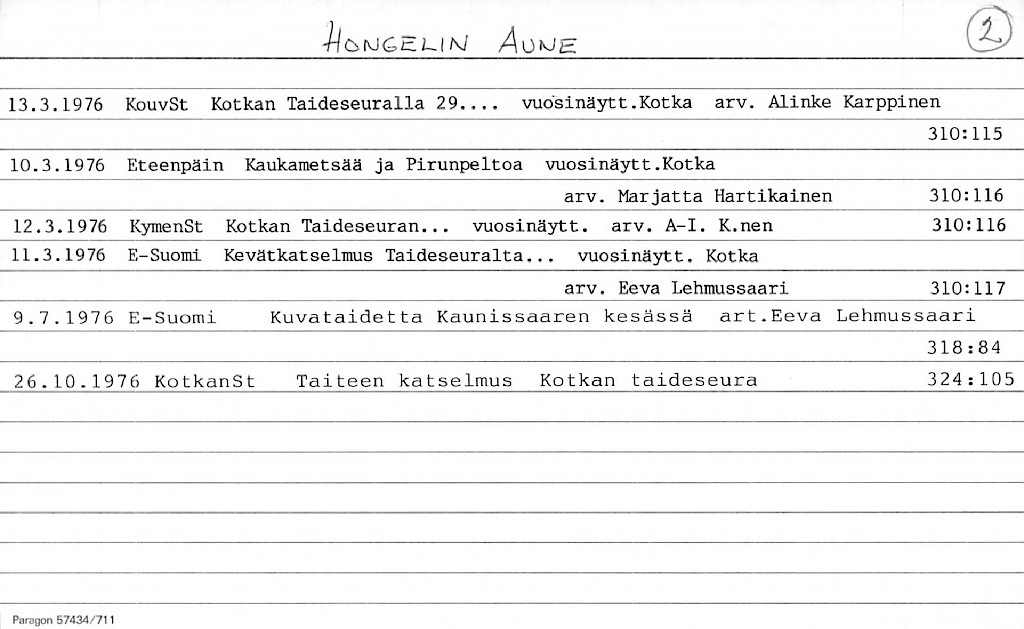 HONGELIN AUNE 2
13.3.1976 KouvSt Kotkan Taideseuralla 29.... vuosinäytt.Kotka arv. Alinke Karppinen
310:115
10.3.1976 Eteenpäin Kaukametsää ja Pirunpeltoa vuosinäytt.Kotka
arv. Marjatta Hartikainen 310:116
12.3.1976 KymenSt Kotkan Taideseuran... vuosinäytt. arv. A-I. K.nen 310:116
11.3.1976 E-Suomi Kevätkatselmus Taideseuralta... vuosinäytt. Kotka
arv. Eeva Lehmussaari 310:117
9.7.1976 E-Suomi Kuvataidetta Kaunissaaren kesässä art.Eeva Lehmussaari
318:84
26.10.1976 KotkanSt Taiteen katselmus Kotkan taideseura 324:105
Paragon 57434/711